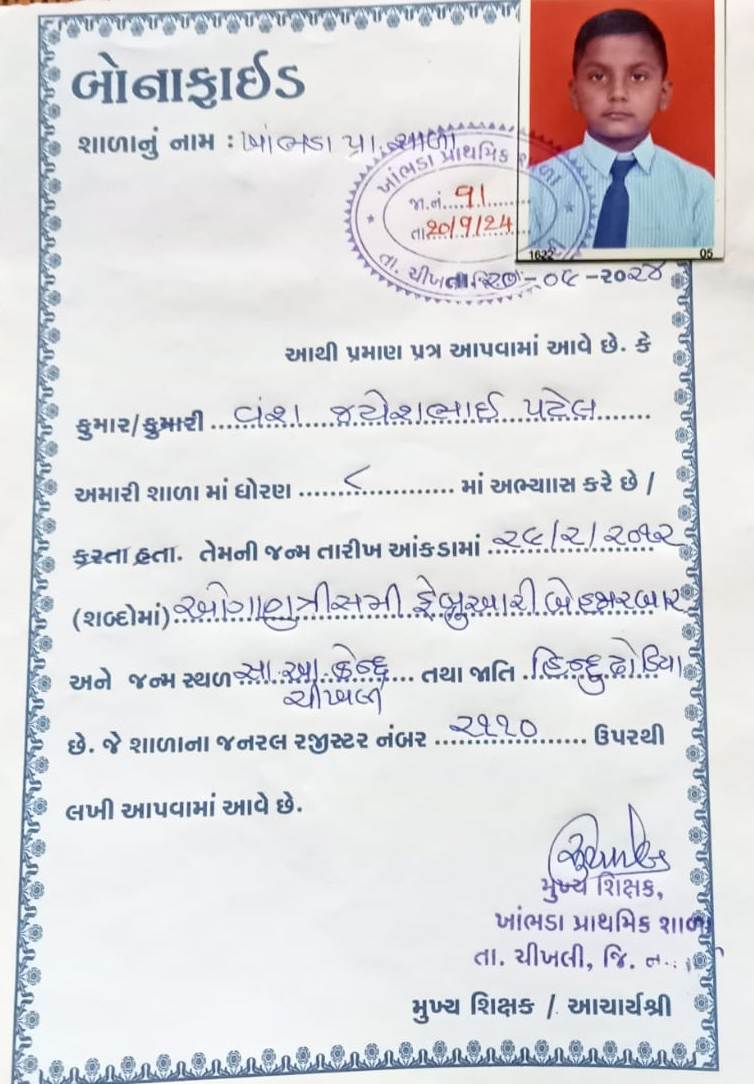 બોનાફાઈડ
શાળાનું નામ : ખાંભડા પ્રા. શાળા
ખાંભડા પ્રાથમિક શાળા
જા.નં. 91
તા. 20/9/24
તા. ચીખલી
1622 05
તા. ૨૦-૦૯-૨૦૨૪
આથી પ્રમાણ પત્ર આપવામાં આવે છે. કે
કુમાર/કુમારી વંશ જયેશભાઈ પટેલ
અમારી શાળા માં ધોરણ ૮ માં અભ્યાાસ કરે છે /
કરતા હતા. તેમની જન્મ તારીખ આંકડામાં ૨૯/૨/૨૦૧૨
(શબ્દોમાં) ઓગણત્રીસમી ફેબ્રુઆરી બેહજારબાર
અને જન્મ સ્થળ સા.આ.કેન્દ્ર તથા જાતિ હિન્દુ ઢોડિયા
ચીખલી
છે. જે શાળાના જનરલ રજીસ્ટર નંબર ૨૧૧૦ ઉપરથી
લખી આપવામાં આવે છે.
મુખ્ય શિક્ષક,
ખાંભડા પ્રાથમિક શાળા
તા. ચીખલી, જિ. ન.
મુખ્ય શિક્ષક / આચાર્યશ્રી